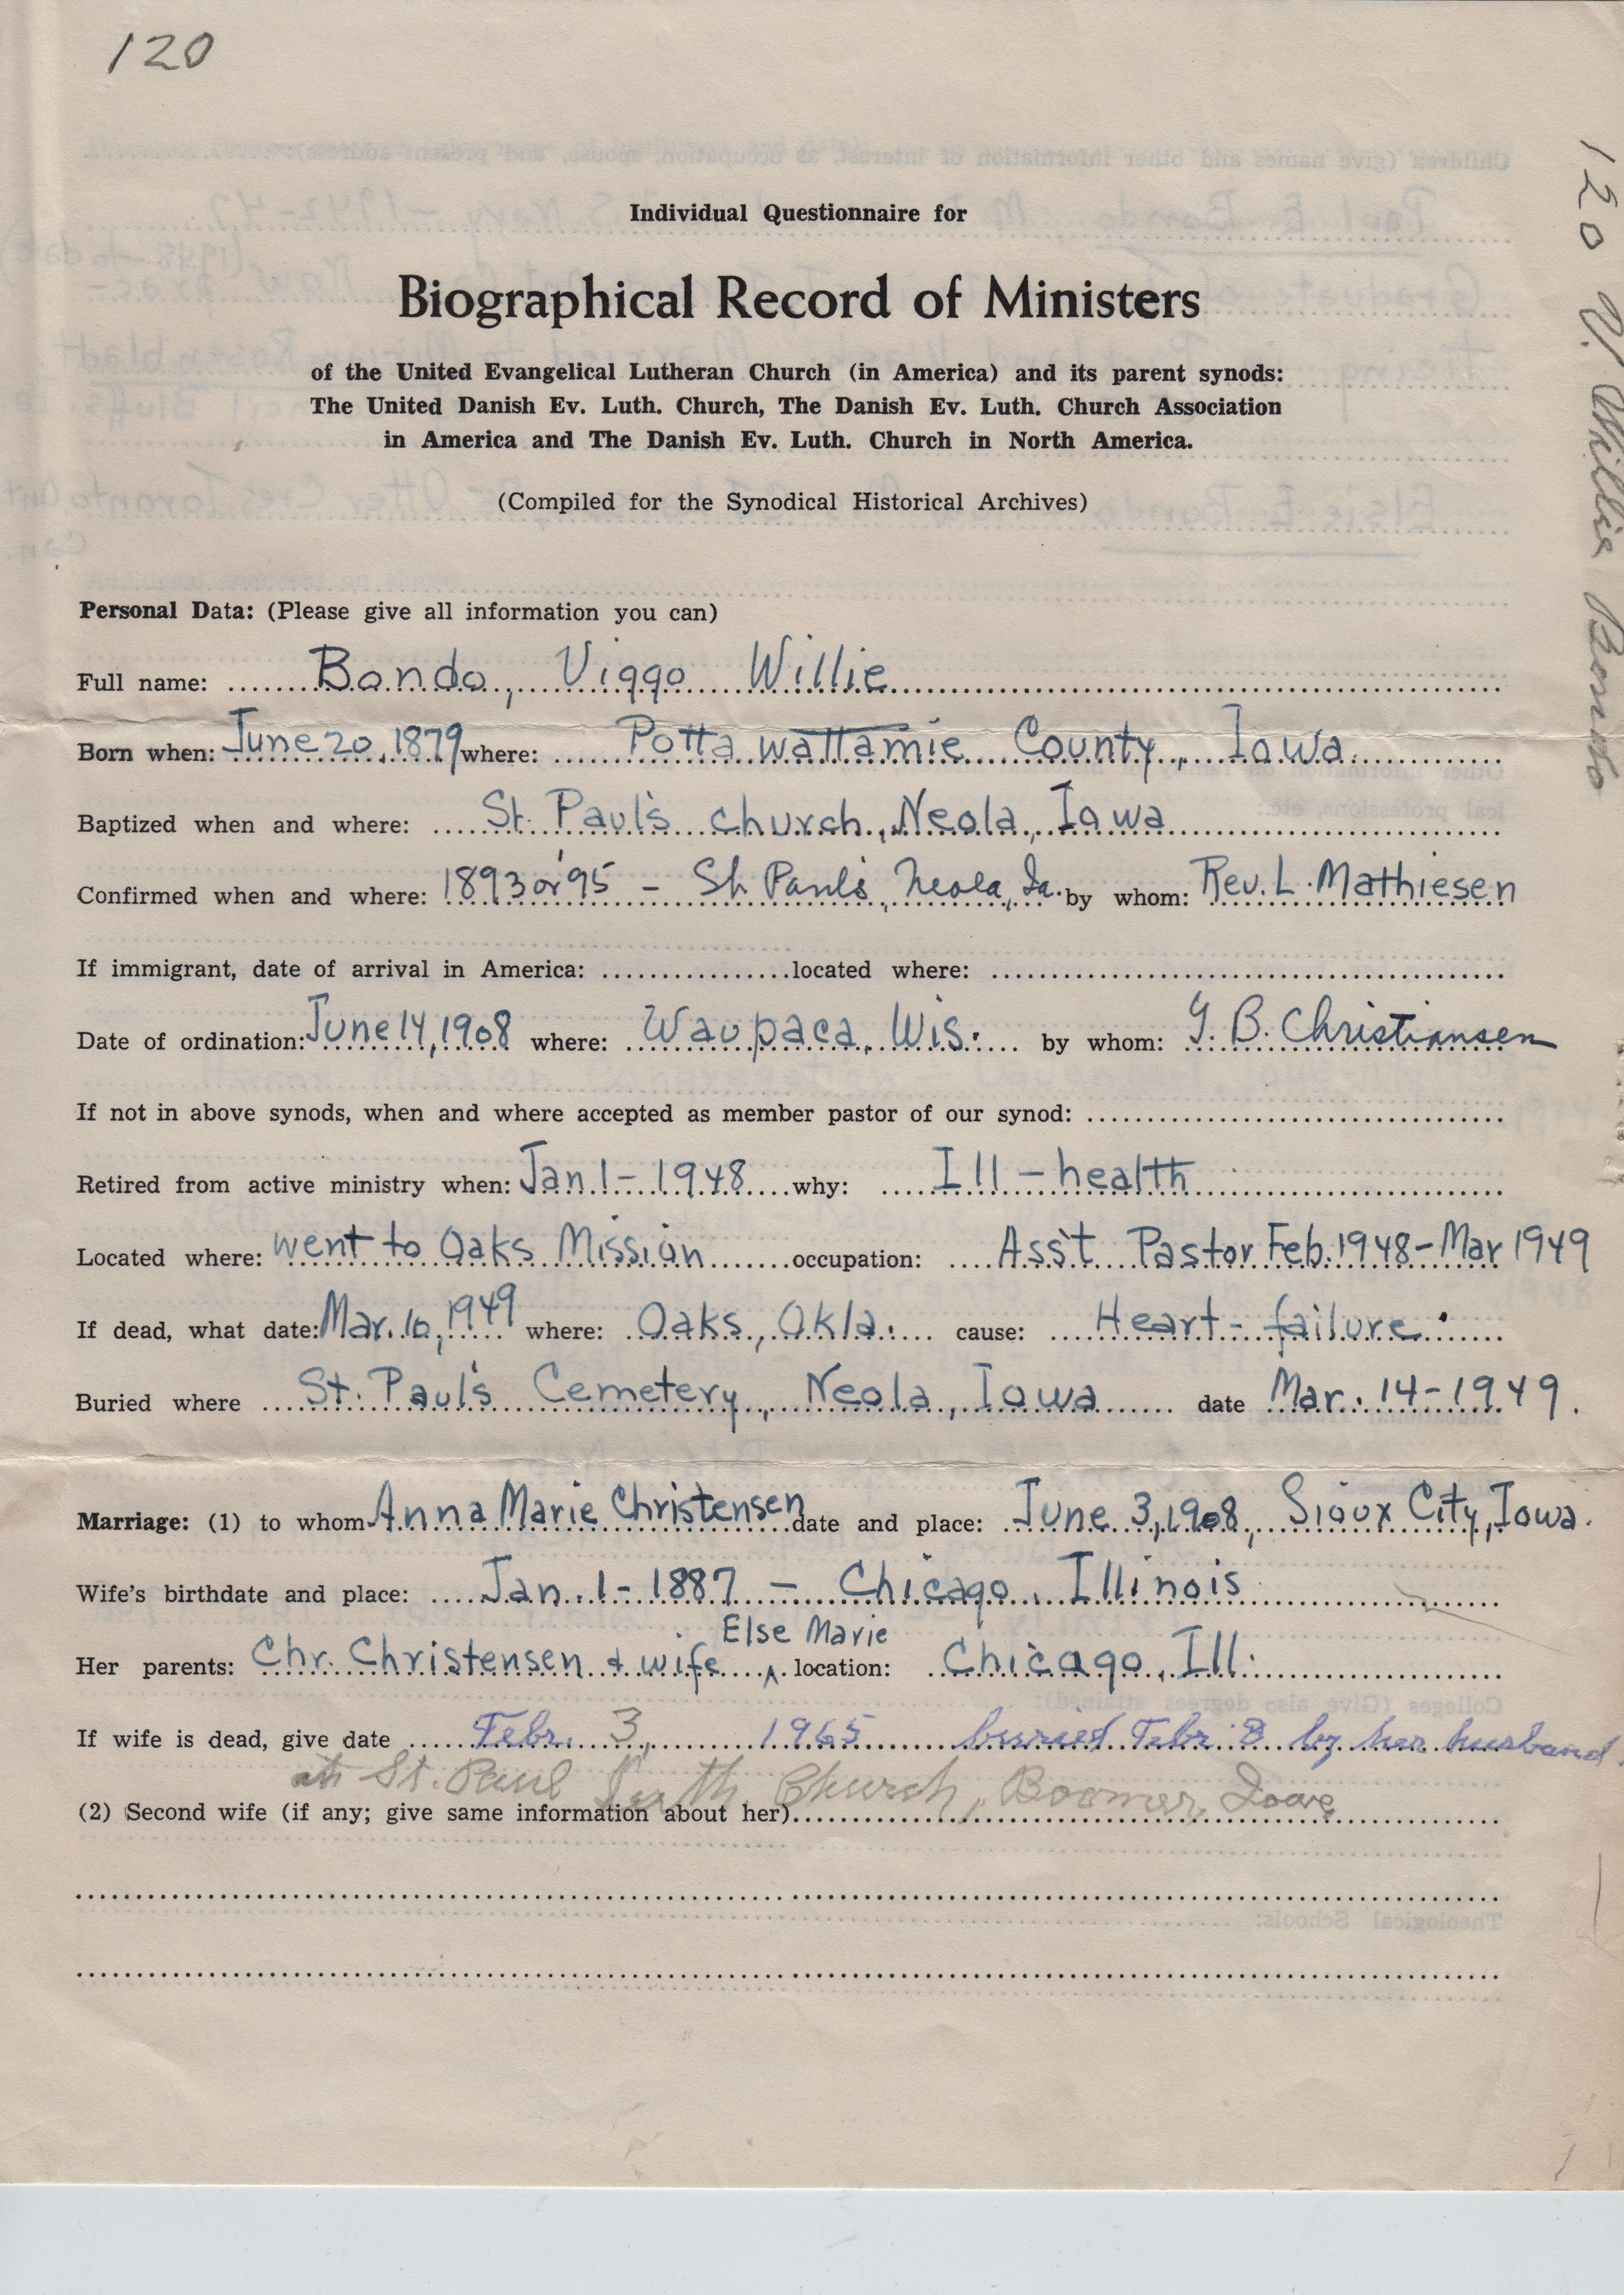 120
Individual Questionnaire for
Biographical Record of Ministers
of the United Evangelical Lutheran Church (in America) and its parent synods:
The United Danish Ev. Luth. Church, The Danish Ev. Luth. Church Association
in America and The Danish Ev. Luth. Church in North America.
(Compiled for the Synodical Historical Archives)
Personal Data: (Please give all information you can)
Full name: Bondo, Viggo Willie
Born when: June 20, 1879 where: Pottawattamie County, Iowa.
Baptized when and where: St. Paul's church, Neola, Iowa
Confirmed when and where: 1893 or '95 - St. Paul's, Neola, Ia. by whom: Rev. L. Mathiesen
If immigrant, date of arrival in America: located where:
Date of ordination: June 14, 1908 where: Waupaca, Wis. by whom: G. B. Christiansen
If not in above synods, when and where accepted as member pastor of our synod:
Retired from active ministry when: Jan 1 - 1948 why: Ill - health
Located where: went to Oaks Mission occupation: Ass't Pastor Feb. 1948 - Mar 1949
If dead, what date: Mar. 10, 1949 where: Oaks, Okla. cause: Heart - failure.
Buried where St. Paul's Cemetery, Neola, Iowa date Mar. 14 - 1949.
Marriage: (1) to whom Anna Marie Christensen date and place: June 3, 1908, Sioux City, Iowa.
Wife's birthdate and place: Jan. 1 - 1887 - Chicago, Illinois
Else Marie
Her parents: Chr. Christensen & wife ^ location: Chicago, Ill.
If wife is dead, give date Febr. 3, 1965 buried Febr 8 by her husband.
at St. Paul Luth. Church, Boomer, Iowa
(2) Second wife (if any; give same information about her)
120 V. Willie Bondo